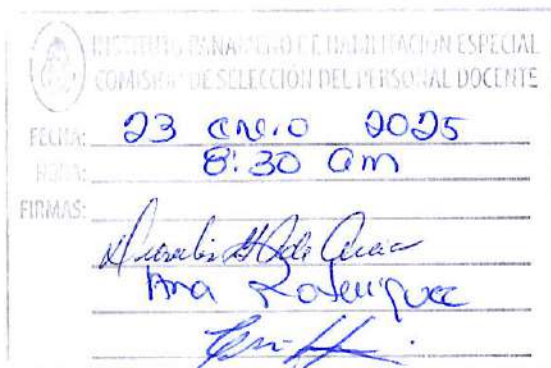 INSTITUTO PANAMEÑO DE HABILITACIÓN ESPECIAL
COMISIÓN DE SELECCIÓN DEL PERSONAL DOCENTE
FECHA: 23 enero 2025
HORA: 8:30 am
FIRMAS:
Ana Rodríguez